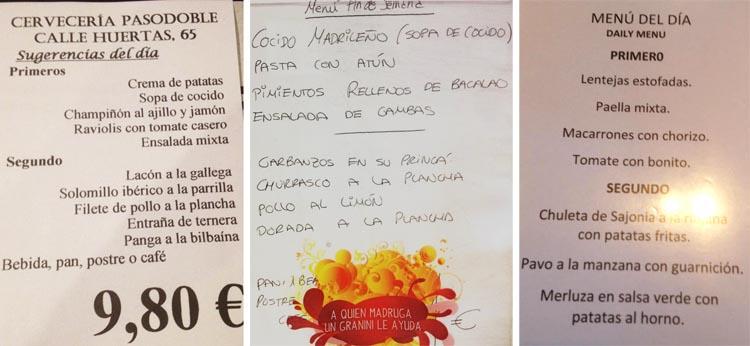 CERVECERÍA PASODOBLE
CALLE HUERTAS, 65
Sugerencias del día
Primeros
Crema de patatas
Sopa de cocido
Champiñón al ajillo y jamón
Raviolis con tomate casero
Ensalada mixta
Segundo
Lacón a la gallega
Solomillo ibérico a la parrilla
Filete de pollo a la plancha
Entraña de ternera
Panga a la bilbaína
Bebida, pan, postre o café
9,80 €
Menú Fin de Semana
COCIDO MADRILEÑO (SOPA DE COCIDO)
PASTA CON ATÚN
PIMIENTOS RELLENOS DE BACALAO
ENSALADA DE GAMBAS
GARBANZOS EN SU PRINGÁ
CHURRASCO A LA PLANCHA
POLLO AL LIMÓN
DORADA A LA PLANCHA
PAN
POSTRE
€
A QUIEN MADRUGA
UN GRANINI LE AYUDA
MENÚ DEL DÍA
DAILY MENU
PRIMERO
Lentejas estofadas.
Paella mixta.
Macarrones con chorizo.
Tomate con bonito.
SEGUNDO
Chuleta de Sajonia a la
con patatas fritas.
Pavo a la manzana con guarnición.
Merluza en salsa verde con
patatas al horno.